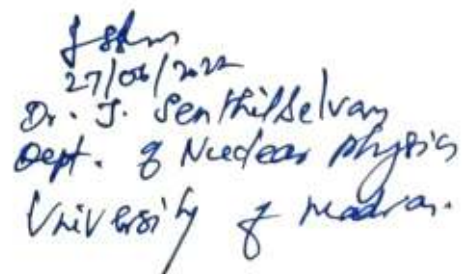 27/06/2022
Dr. J. Senthilselvan
Dept. of Nuclear Physics
University of Madras.